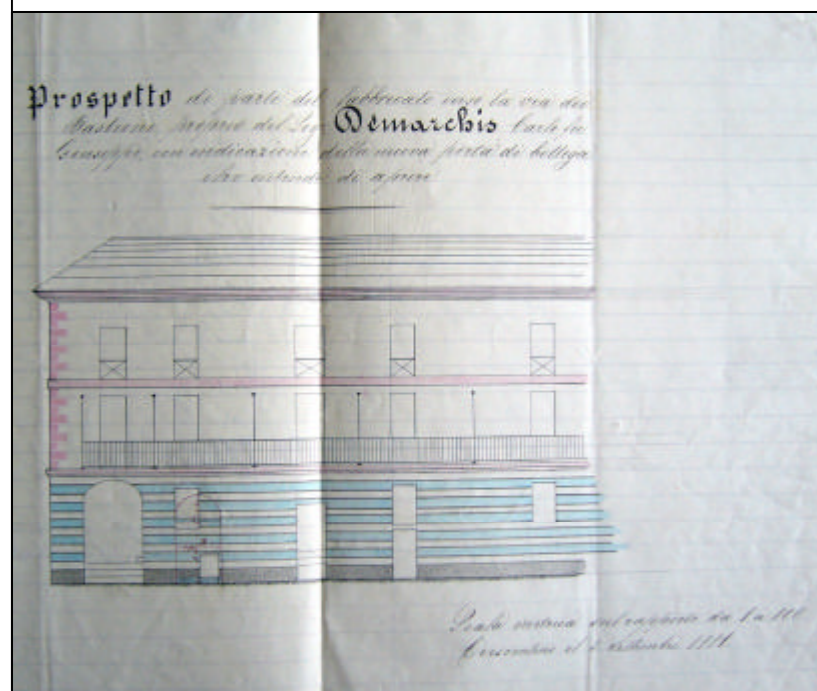 Prospetto di parte del fabbricato verso la via dei
Bastioni, proprio del Sig. Demarchis Carlo fu
Giuseppe, con indicazione della nuova porta di bottega
che intende di aprire
Scala metrica nel rapporto da 1 a 100
il settembre